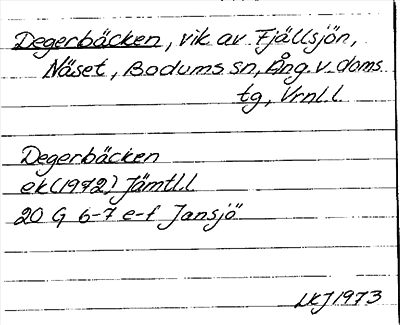 Degerbäcken, vik av Fjällsjön,
Näset, Bodums sn, Ång. v. doms
tg, Vrnl. l
Degerbäcken
ek (1972) Jämtl. l
20 G 6-7 e-f Jansjö
1973